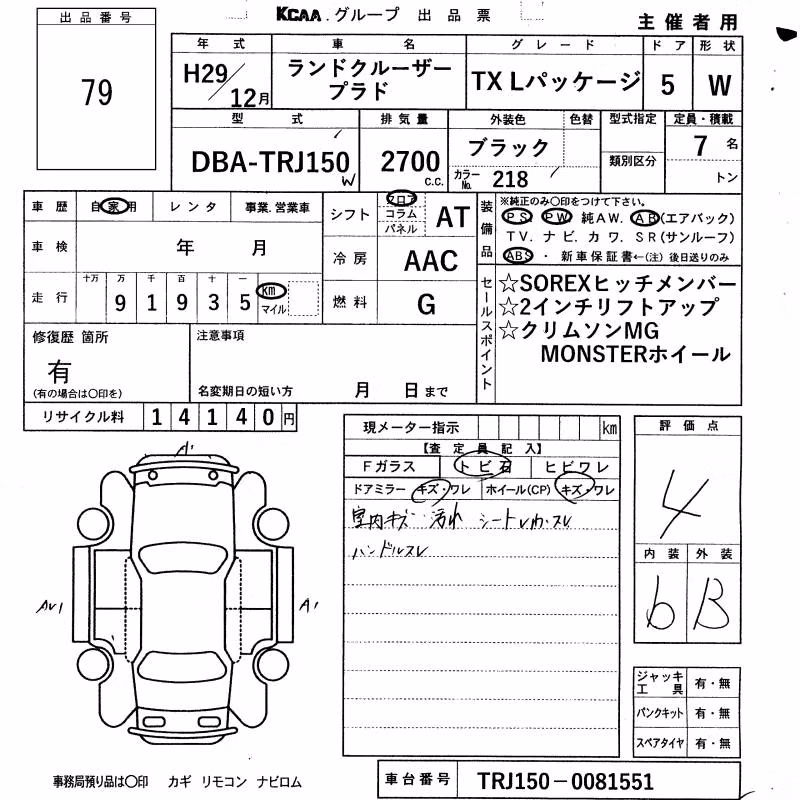 KCAA.グループ 出品票
主催者用
出品番号
79
年式 車名 グレード ドア 形状
H29/12月 ランドクルーザープラド TX Lパッケージ 5 W
型式 排気量 外装色 色替 型式指定 定員・積載
DBA-TRJ150W 2700 C.C. ブラック 7名
カラーNo. 218 類別区分 トン
車歴 自家用 レンタ 事業.営業車
車検 年 月
走行 十万 万 千 百 十
9 1 9 3 5 km マイル
シフト フロア コラム パネル AT
冷房 AAC
燃料 G
装備品 ※純正のみ〇印をつけて下さい。
PS PW 純AW. AB(エアバック)
TV. ナビ. カワ. SR(サンルーフ)
ABS ・ 新車保証書←(注) 後日送りのみ
セールスポイント
☆SOREXヒッチメンバー
☆2インチリフトアップ
☆クリムソンMG
MONSTERホイール
修復歴 箇所
有
(有の場合は〇印を)
注意事項
名変期日の短い方 月 日まで
リサイクル料 14140円
現メーター指示 km
【査定員記入】
Fガラス トビ石 ヒビワレ
ドアミラー キズ・ワレ ホイール(CP) キズ・ワレ
室内キズ 汚れ シート
ハンドルスレ
評価点
4
内装 外装
b B
A1
AW1
A1
ジャッキ工具 有・無
パンクキット 有・無
スペアタイヤ 有・無
事務局預り品は〇印 カギ リモコン ナビロム
車台番号 TRJ150-0081551